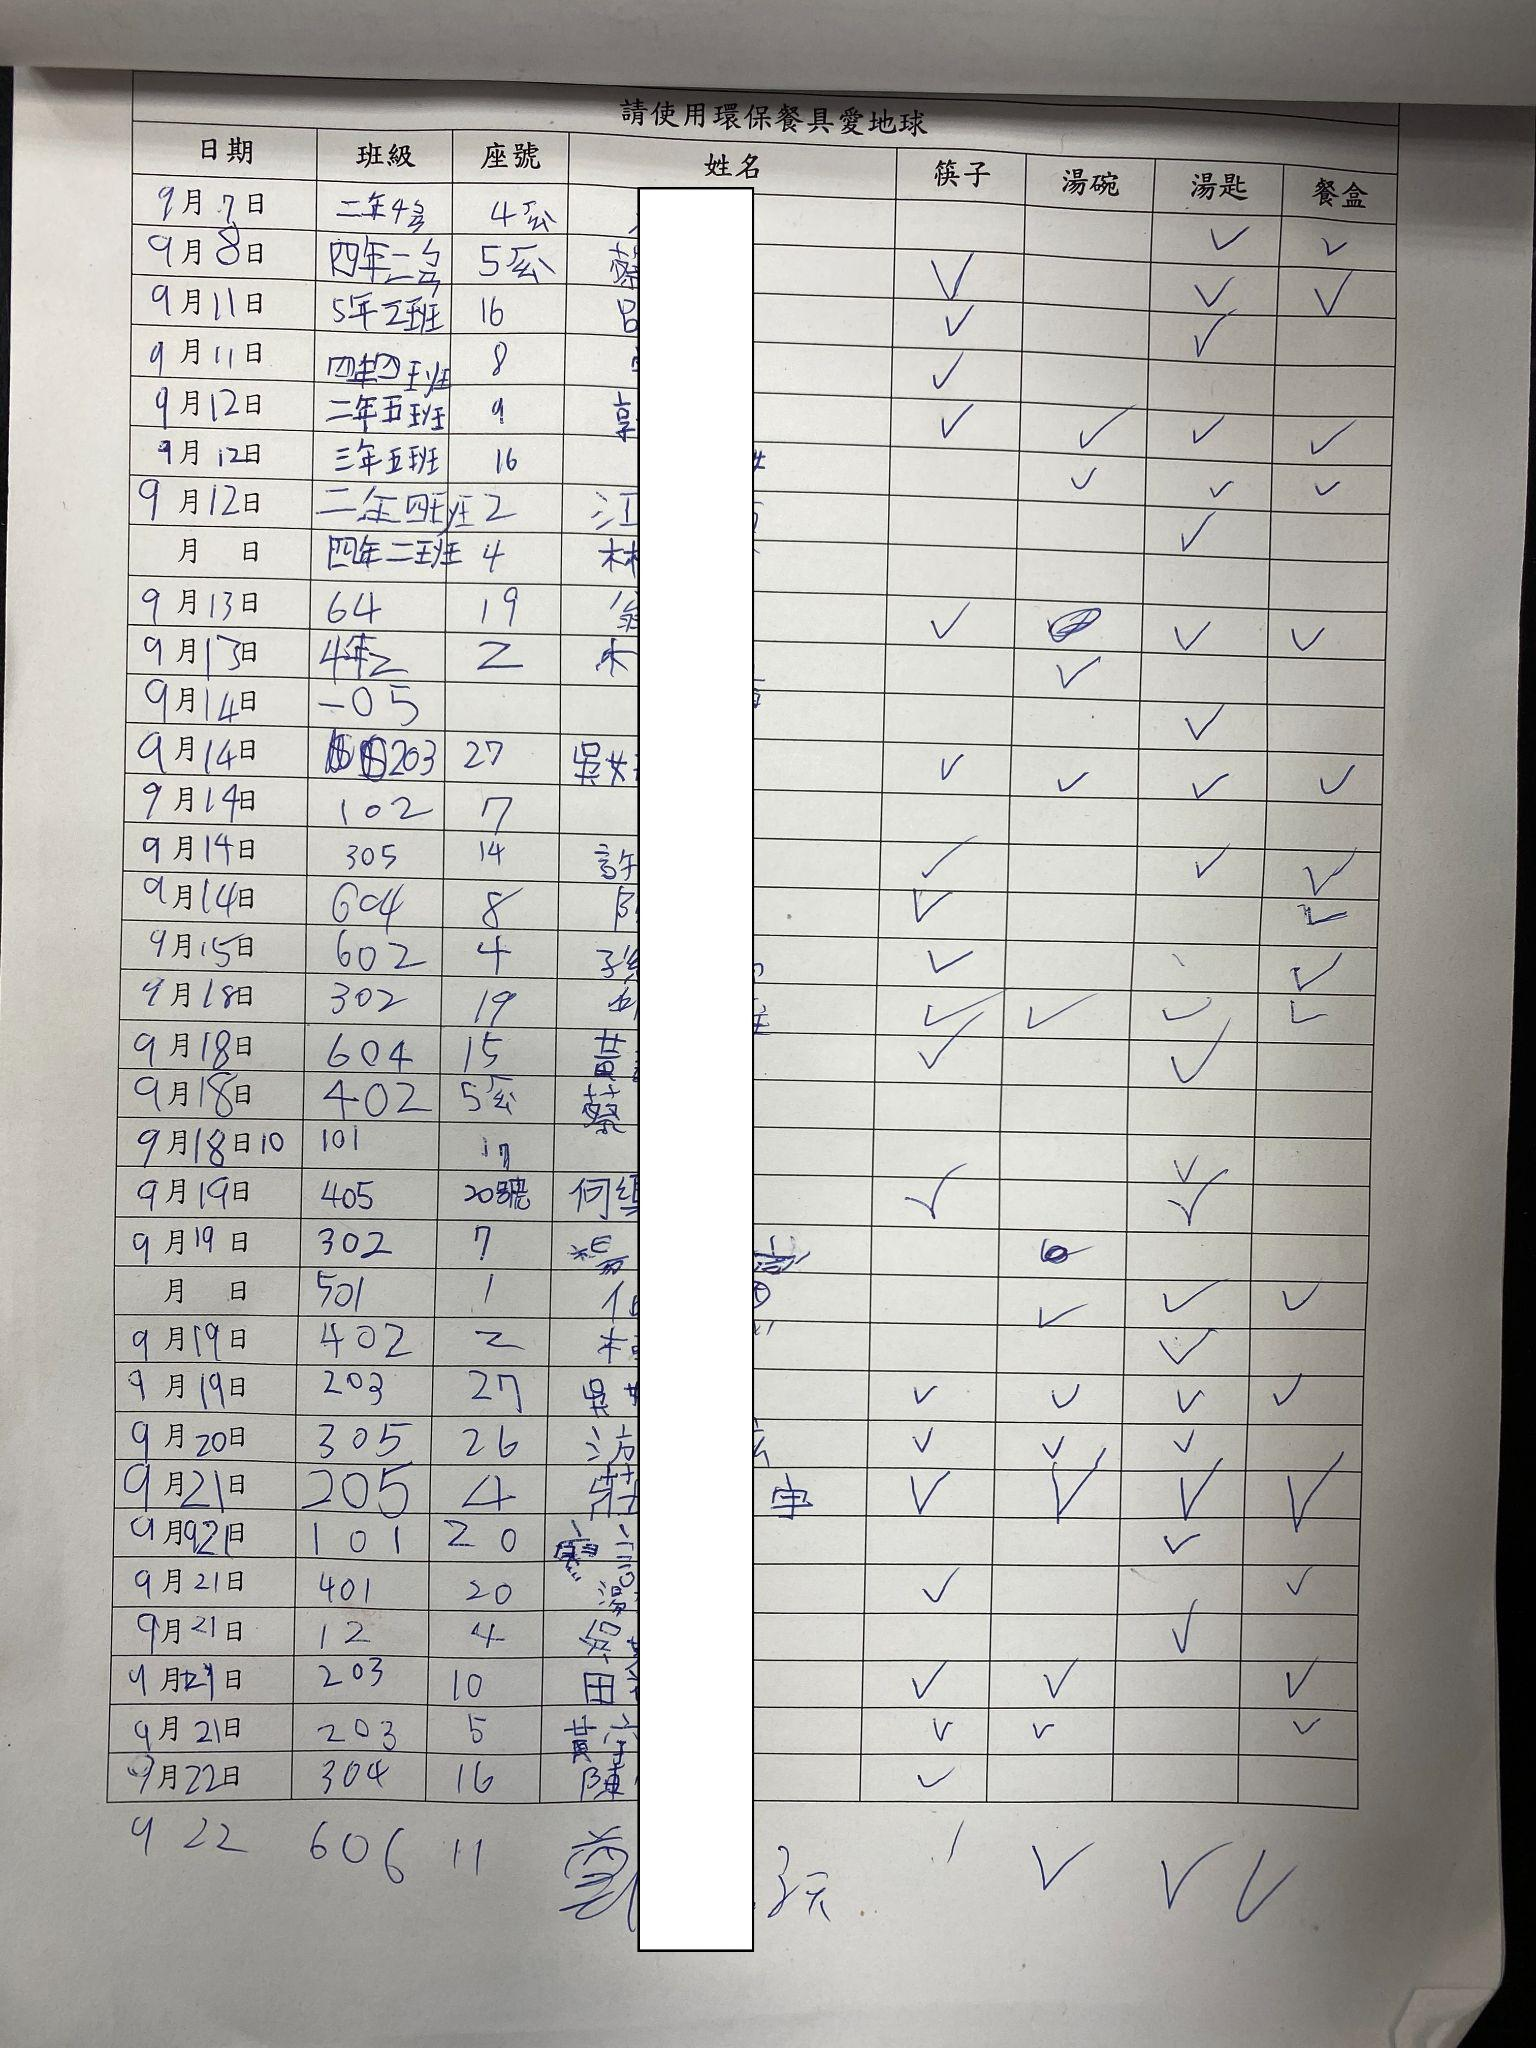 請使用環保餐具愛地球
日期 班級 座號 姓名 筷子 湯碗 湯匙 餐盒
9月7日 二年4号 4厷 ✓ ✓
9月8日 四年二号 5厷 蔡 ✓ ✓ ✓
9月11日 5年二班 16 呂 ✓ ✓
9月11日 四年四班 8 ✓
9月12日 二年五班 9 ✓ ✓ ✓ ✓
9月12日 三年五班 16 ✓ ✓ ✓
9月12日 二年四班 2 江 ✓
月 日 四年二班 4 林
9月13日 64 19 ✓ ✓ ✓
9月13日 4年2 2 ✓
9月14日 -05 ✓
9月14日 203 27 吳 ✓ ✓ ✓ ✓
9月14日 102 7
9月14日 305 14 許 ✓ ✓ ✓
9月14日 604 8 ✓ ✓
9月15日 602 4 ✓ ✓
9月18日 302 19 ✓ ✓ ✓ ✓
9月18日 604 15 黃 ✓ ✓
9月18日 402 5厷 蔡
9月18日10 101 17 ✓
9月19日 405 20號 何 ✓ ✓
9月19日 302 7 楊
月 日 501 1 ✓ ✓ ✓
9月19日 402 2 ✓
9月19日 203 27 吳 ✓ ✓ ✓ ✓
9月20日 305 26 ✓ ✓ ✓
9月21日 205 4 莊 ✓ ✓ ✓ ✓
9月921日 101 20 ✓
9月21日 401 20 湯 ✓ ✓
9月21日 12 4 ✓
9月21日 203 10 田 ✓ ✓ ✓
9月21日 203 5 黃 ✓ ✓ ✓
9月22日 304 16 陳 ✓
9 22 606 11 ✓ ✓ ✓